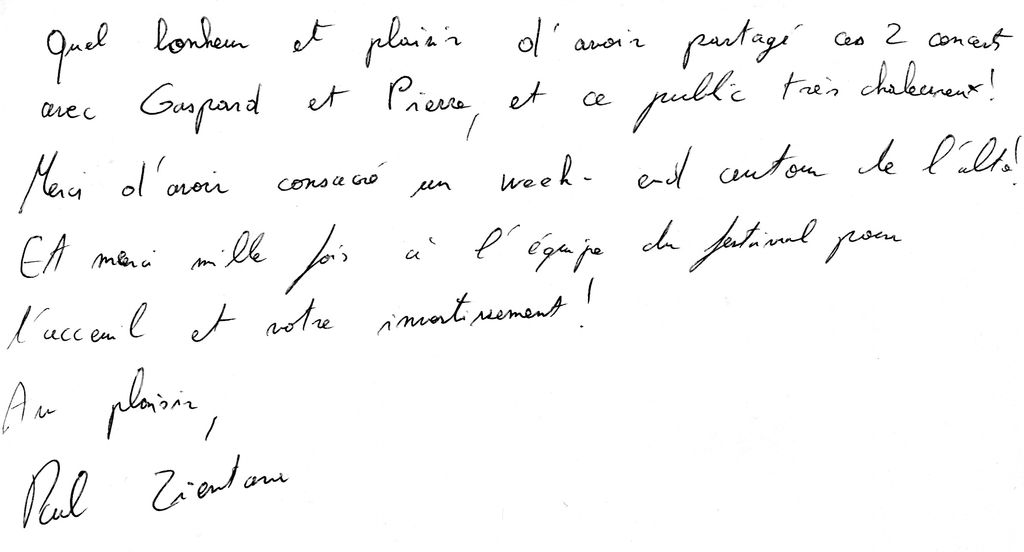 Quel bonheur et plaisir d'avoir partagé ces 2 concerts
avec Gaspard et Pierre, et ce public très chaleureux !
Merci d'avoir consacré un week-end autour de l'alto !
Et merci mille fois à l'équipe du festival pour
l'acceuil et votre investissement !
Au plaisir,
Paul Zientara